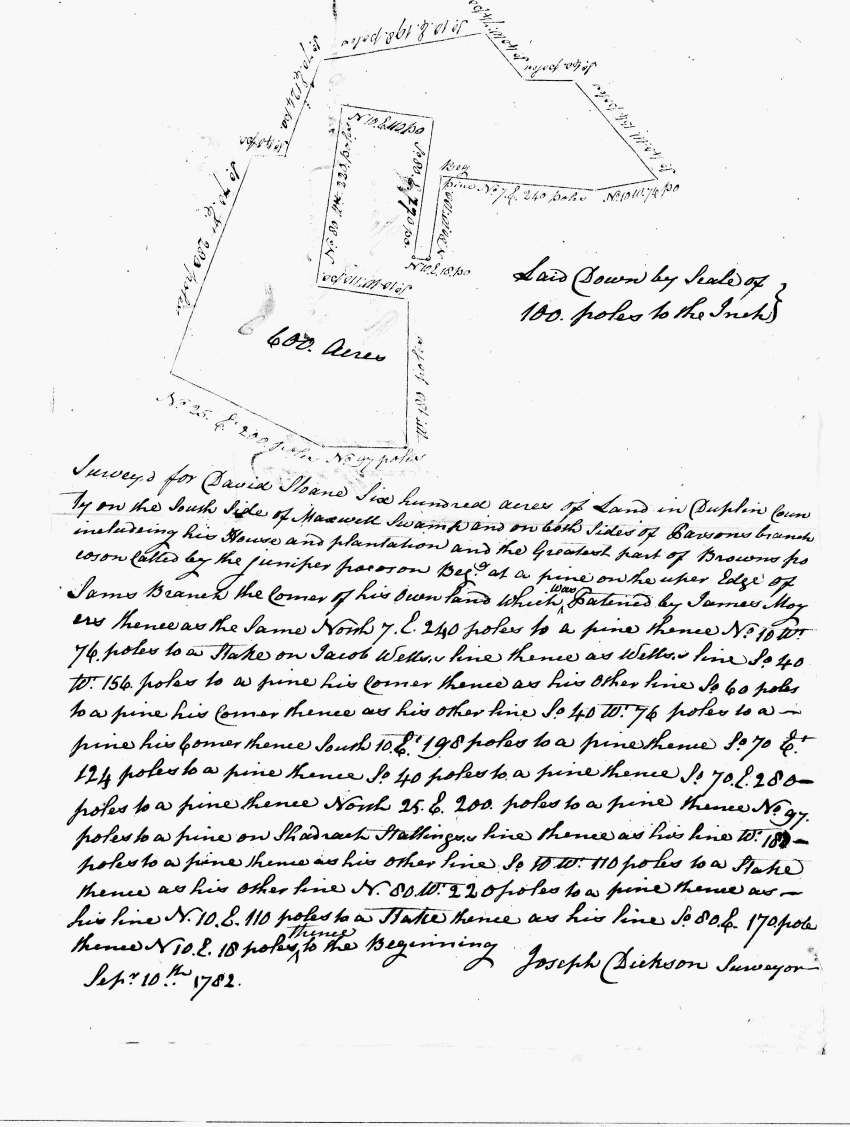 So 10. E. 198. poles
So 40 W. 76 po
So 60 poles
So 70 E. 124 po
So 40 po
Beg
pine No 7 E. 240 poles
No 10 W. 74 po
N 10 E. 112 po
No. 80 W. 220 poles
So 80 E. 170 po
N 10 E. 18. po
So 10. W. 110 po
So 70 E. 280 poles
No. 25. E. 200. poles
No 97 poles
Laid Down by Scale of
100. poles to the Inch
600. Acres
Survey,d for David Sloane Six hundred acres of Land in Duplin Coun
ty on the South Side of Maxwell Swamp and on both Sides of Parsons branch
includeing his House and plantation and the Greatest part of Browns po
coson Called by the juniper pocoson Beg.g at a pine on he uper Edge of
Sams Branch the Corner of his Own land Which was Patened by James Moy
ers thence as the Same North 7. E. 240 poles to a pine thence No 10 Wt
76. poles to a Stake on Jacob Wells,s line thence as Wells,s line So 40
Wt. 156. poles to a pine his Corner thence as his Other line So 60 poles
to a pine his Corner thence as his other line So 40 Wt. 76 poles to a —
pine his Corner thence South 10. Et 198 poles to a pine thence So 70 Et
124 poles to a pine thence So 40 poles to a pine thence So 70. E. 280 —
poles to a pine thence North 25. E. 200. poles to a pine thence No 97.
poles to a pine on Shadrach Stallings,s line thence as his line Wt.
poles to a pine thence as his other line So 10 Wt. 110 poles to a Stake
thence as his other line N. 80. Wt. 220 poles to a pine thence as —
his line N. 10. E. 110 poles to a Stake thence as his line So 80. E. 170. pole
thence N 10. E. 18 poles, thence to the Beginning
Joseph Dickson Surveyor
Sepr 10th. 1782.